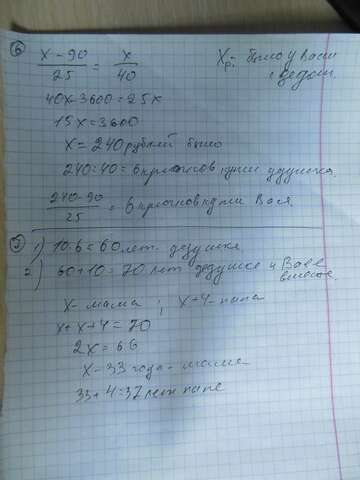 6) (x - 90)/25 = x/40 Xр - было у Васи
с дедом.
40x - 3600 = 25x
15x = 3600
x = 240 рублей было
240 : 40 = 6 крючков купил дедушка.
(240 - 90)/25 = 6 крючков купил Вася
7) 1) 10·6 = 60 лет дедушке.
2) 60 + 10 = 70 лет дедушке и Васе
вместе.
x - мама ; x + 4 - папа
x + x + 4 = 70
2x = 66
x - 33 года - маме
33 + 4 = 37 лет папе